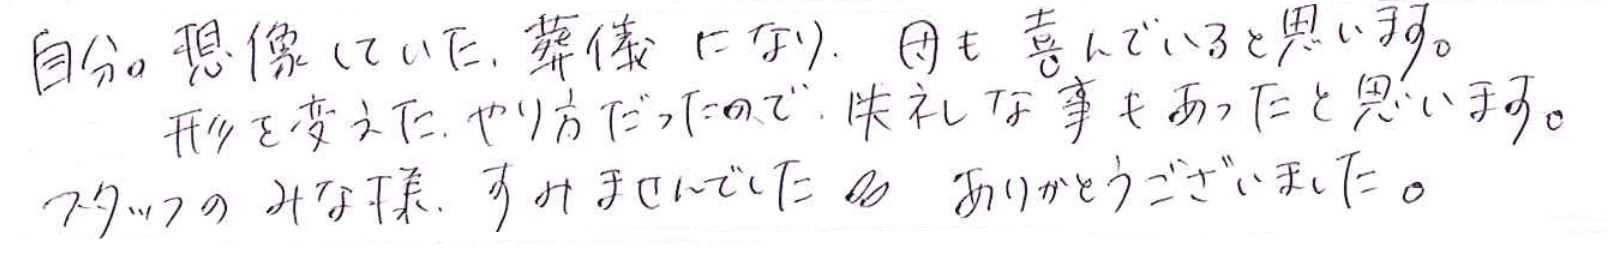 自分。想像していた、葬儀になり、母も喜んでいると思います。
形を変えた、やり方だったので、失礼な事もあったと思います。
スタッフのみな様、すみませんでした ありがとうございました。